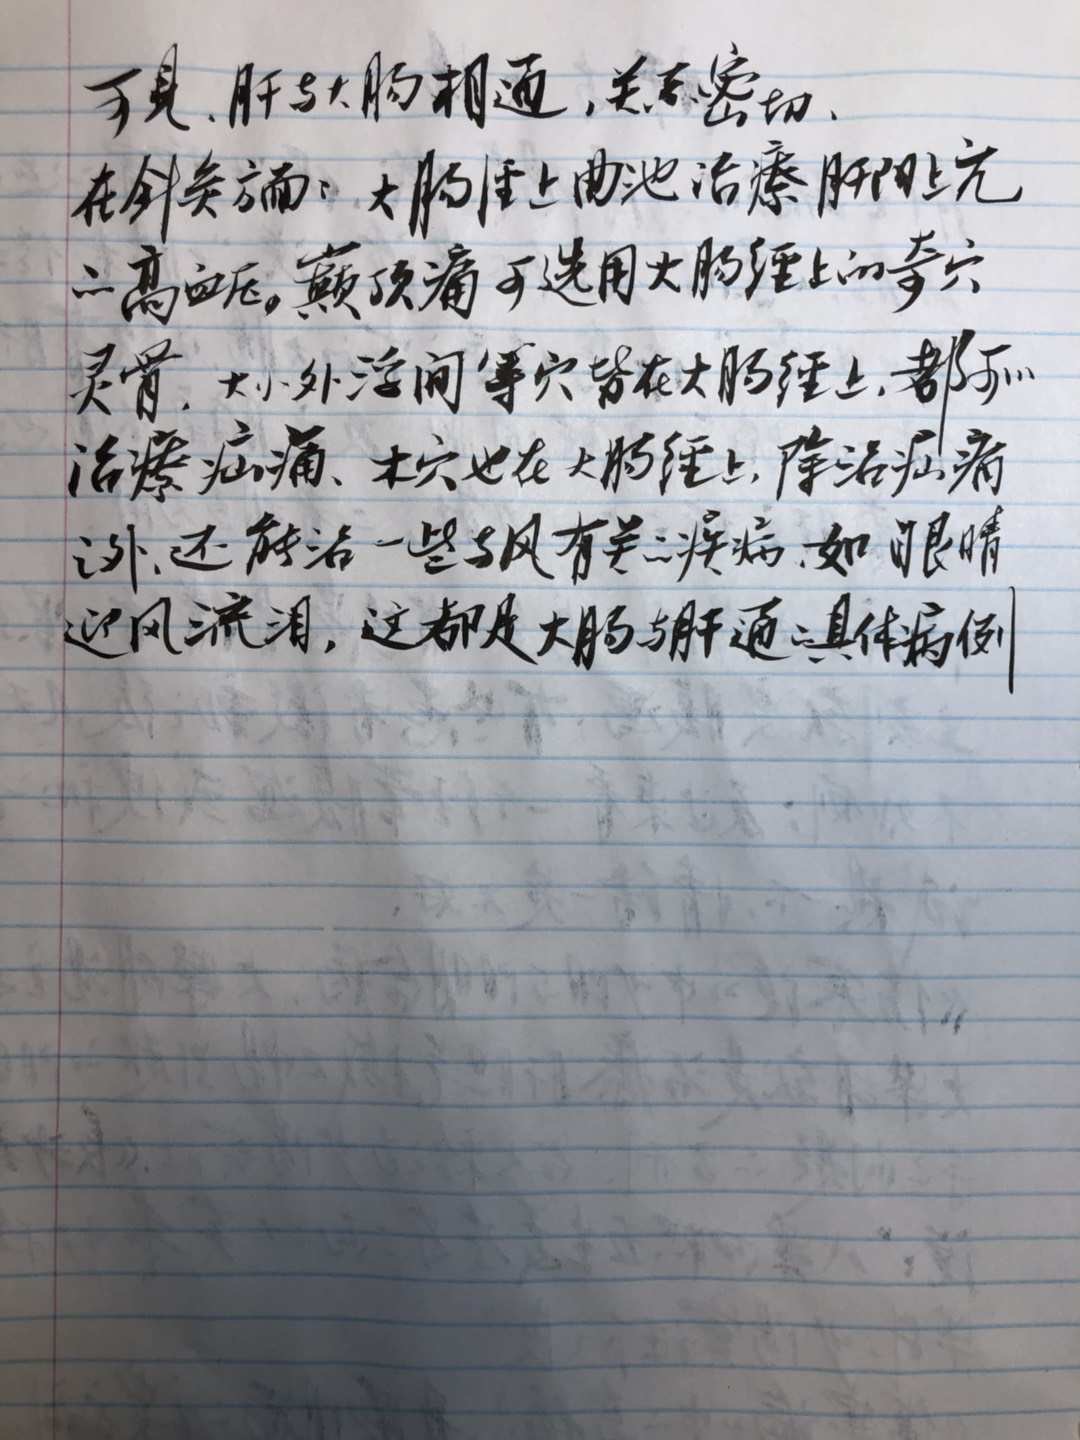 可見、肝与大肠相通，关系密切、
在针灸方面：大肠经上曲池治療肝阳上亢
之高血压。巅顶痛可选用大肠經上的奇穴
灵骨、大小外浮间等穴皆在大肠經上、都可以
治療疝痛、木穴也在大肠經上、除治疝痛
之外、还能治一些与风有关之疾病、如眼睛
迎风流泪，这都是大肠与肝通之具体病例